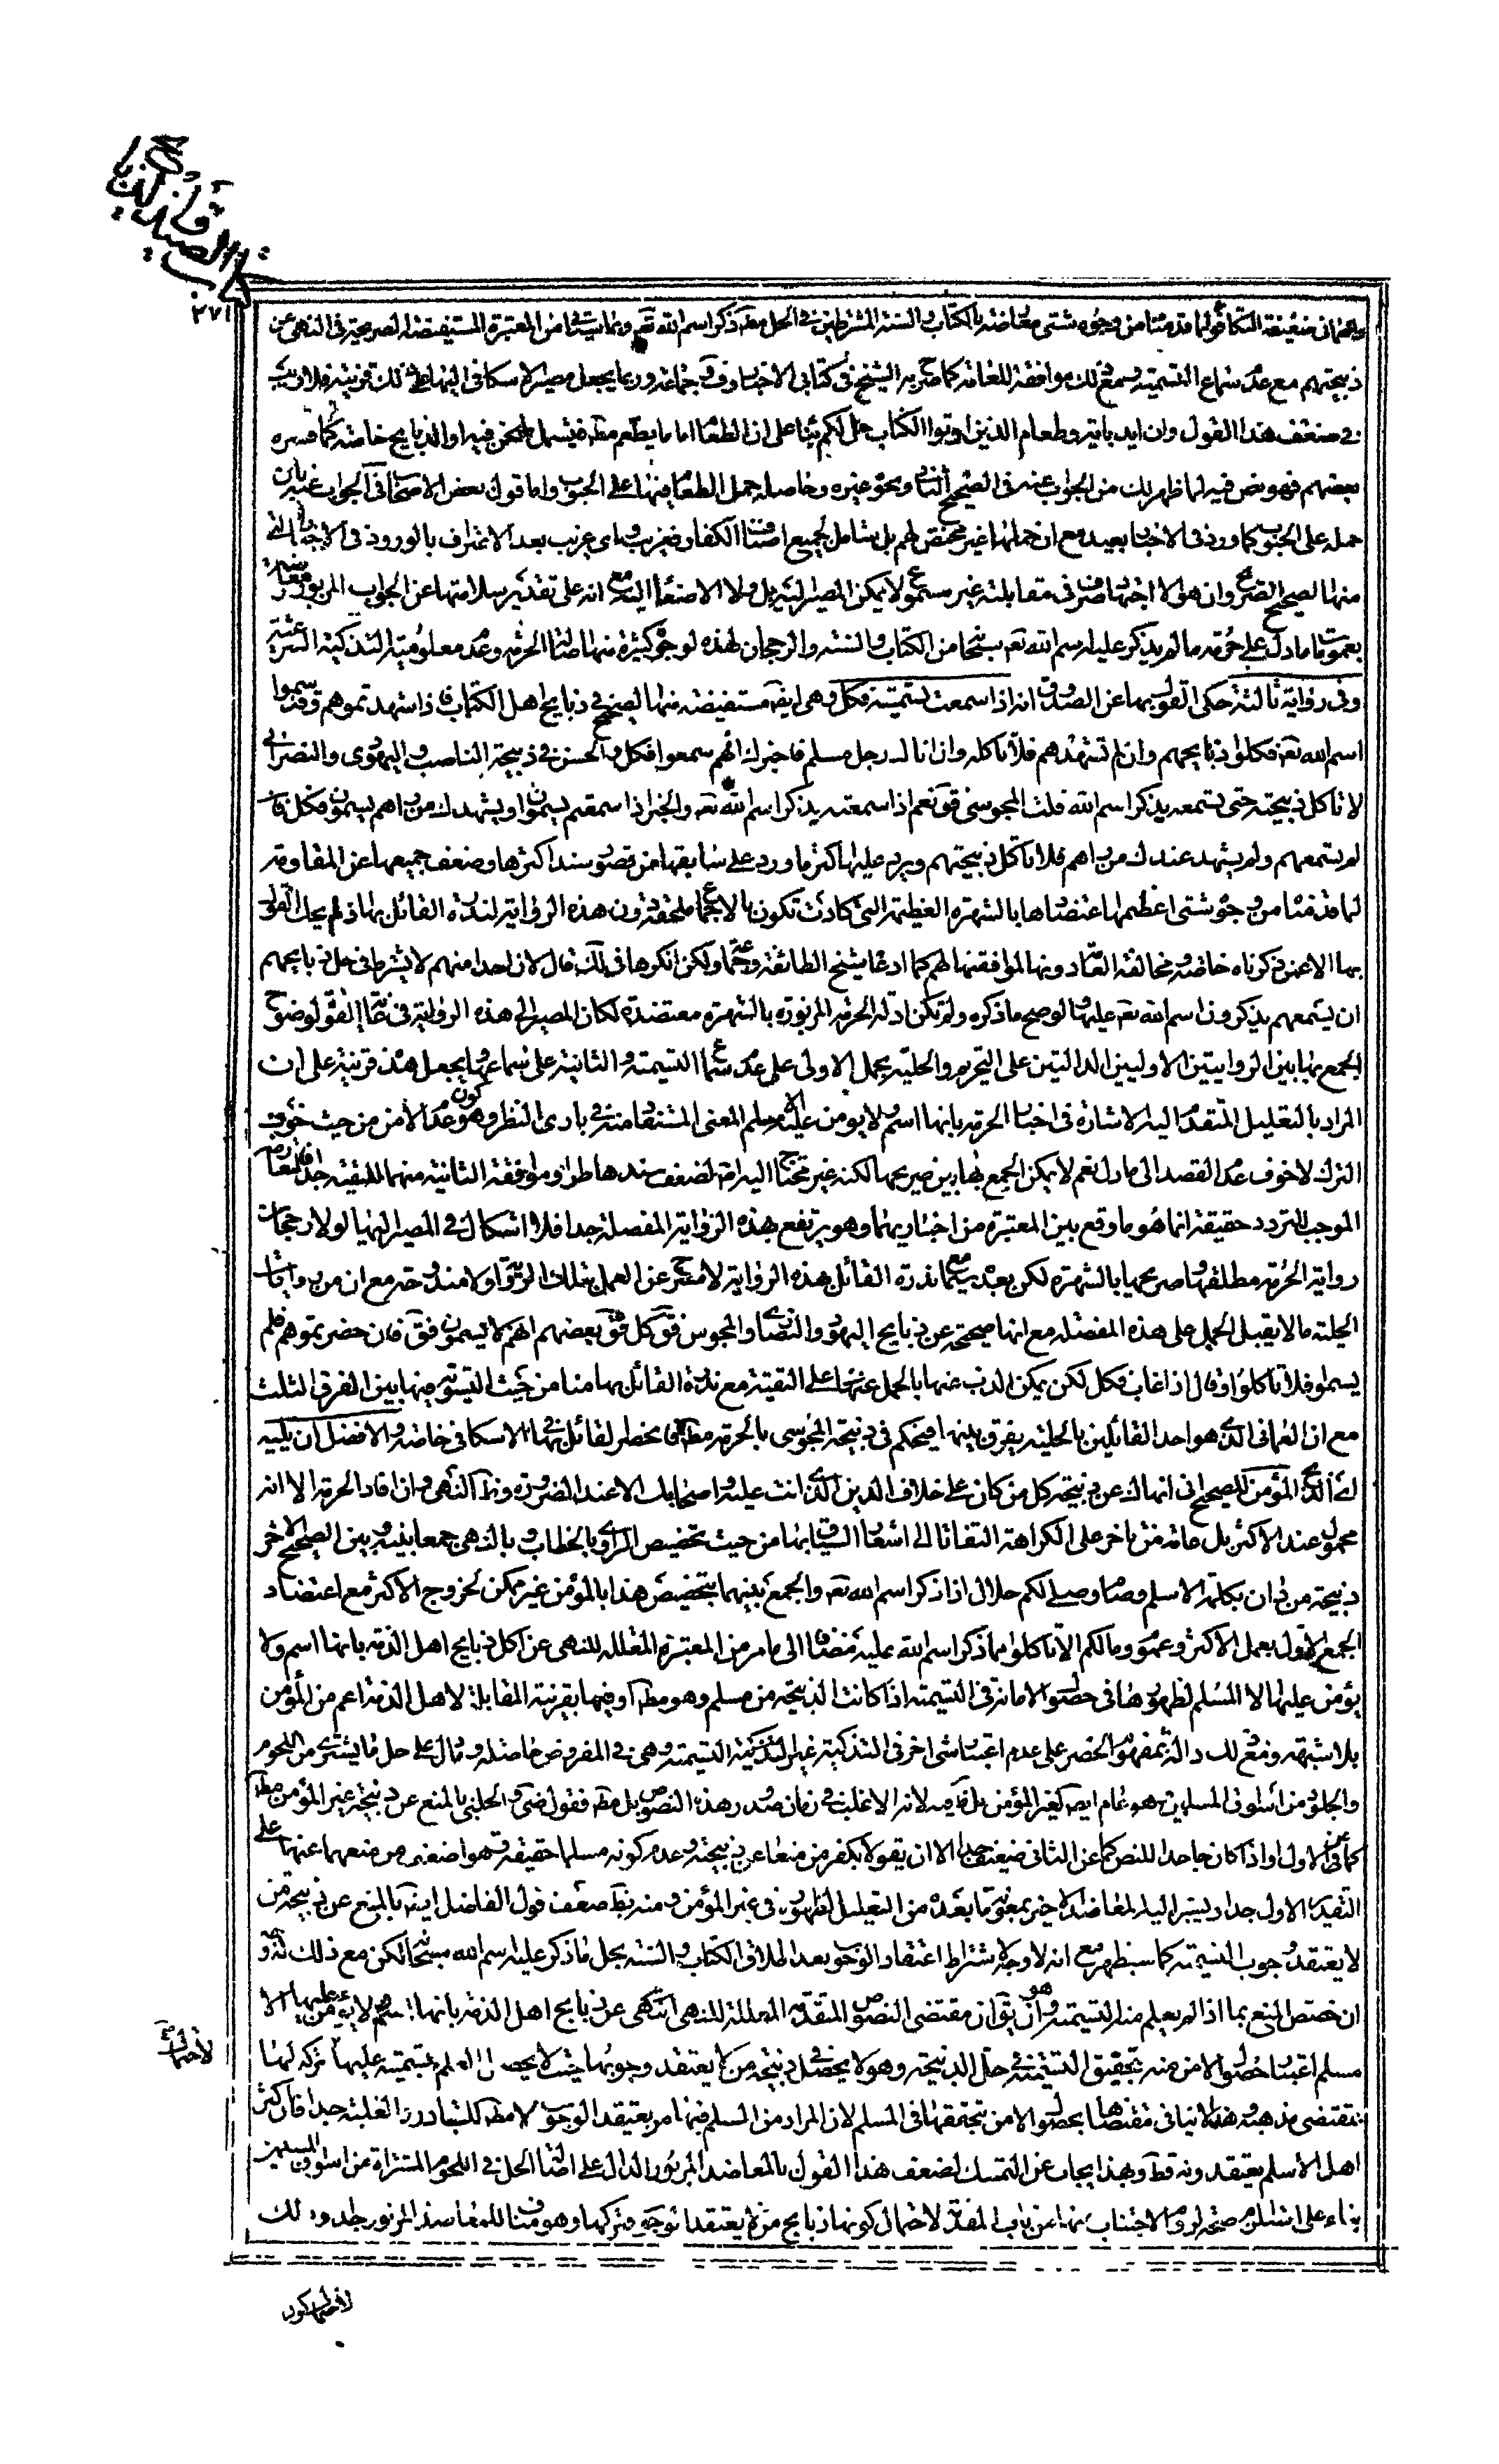 كتاب الصيد والذبايح
٢٧١
ضعيفة التكافؤ لما قدمنا من وجوه شتى معاضدة بالكتاب والسنة المشترطين في الحل ذكر اسم الله تع وبما من المعتبرة المستفيضة الصريحة في النهى عن
ذبيحتهم مع عدم سماع التسمية ومع ذلك موافقة للعامة كما صرح به الشيخ في كتابي الاخبار وجماعة وربما يجعل مصير الاسكافي اليها على ذلك قرينة فلا ريب
في ضعف هذا القول وان ايد باية وطعام الذين اوتوا الكتاب حل لكم بناء على ان الطعام اما ما يطعم مط فيشمل ما نحن فيه او الذبايح خاصة كما فسره
بعضهم فهو نص فيه لما ظهر لك من الجواب عنه في الصحيح ونحو غيره وحاصله حمل الطعام فيها على الحبوب واما قول بعض الاصحاب في الجواب عنه بان
حمله على الحبوب كما ورد في الاخبار بعيد مع ان حملها غير مختص لهم بل شامل لجميع اصناف الكفار فغريب واي غريب بعد الاعتراف بالورود في الاخبار التي
منها الصحيح الصريح وان هو الا اجتهاد صرف في مقابلته غير مسموع لا يمكن المصير اليه بل ولا الاصغاء اليه مع انه على تقدير سلامتها عن الجواب المزبور معارضة
بعمومات ما دل على حرمة ما لم يذكر عليه اسم الله تع سبحانه من الكتاب والسنة والرجحان لهذه لوجوه كثيرة منها اصالة الحرمة وعدم معلومية التذكية الشرعية
وفى رواية ثالثة حكى القول بها عن الصدوق انه اذا سمعت تسميته فكل وهى ايضا مستفيضة منها الصحيح في ذبايح اهل الكتاب فاذا شهدتموهم وقد سموا
اسم الله تع فكلوا ذبايحهم وان لم تشهدهم فلا تاكله وان اتاك رجل مسلم فاخبرك انهم سموا فكل والحسن في ذبيحة الناصب واليهودى والنصرانى
لا تاكل ذبيحته حتى تسمعه يذكر اسم الله قلت المجوسى فق نعم اذا سمعته يذكر اسم الله تع والخبر اذا سمعتم يسمون او يشهد لك من راهم يسمون فكل فان
لم تسمعهم ولم يشهد عندك من راهم فلا تاكل ذبيحتهم ويرد عليها اكثر ما ورد على سابقها من قصور سند اكثرها وضعف جميعها عن المقاومة
لما قدمنا من وجوه شتى اعظمها اعتضادها بالشهرة العظيمة التى كادت تكون بالاجماع ملحقة دون هذه الرواية لندرة القائل بها اذ لم يحك القول
بها الا عمن ذكرناه خاصة ومخالفة العامة دونها لموافقتها لهم كما ادعاه شيخ الطائفة وجماعة ولكن انكرها في لك قال لان احدا منهم لا يشترط في حل ذبايحهم
ان يسمعهم يذكرون اسم الله تع عليها ولو صح ما ذكره ولم تكن ادلة الحرمة المزبورة بالشهرة معتضدة لكان المصير الى هذه الرواية في غاية القوة لوضوح
الجمع بها بين الروايتين الاوليين الدالتين على التحريم والحلية بحمل الاولى على عدم سماع التسمية والثانية على سماعها ويجعل هذه قرينة على ان
المراد بالتعليل المتقدم اليه الاشارة في اخبار الحرمة بانها اسم ولا يومن عليه الا مسلم المعنى المستفاد منه في بادى النظر وهو كون عدم الامن من حيث خوف
الترك لا خوف عدم القصد الى مادل نعم لا يمكن الجمع بها بين صريحها لكنه غير محتاج اليه لضعف سندها طرا وموافقة الثانية منهما للتقية جدا فالتعارض
الموجب للتردد حقيقة انما هو ما وقع بين المعتبرة من اخبارهما وهو يرتفع بهذه الرواية المفصلة جدا فلا اشكال في المصير اليها لو لا رجحان
رواية الحرمة مطلقها وصريحها بالشهرة لكن بعده سيما مع ندرة القائل بهذه الرواية لا محيص عن العمل بتلك الرواية ولا مندوحة مع ان من روايات
الحلية ما لا يقبل الحمل على هذه المفصلة مع انها صحيحة عن ذبايح اليهود والنصارى والمجوس فق كل فق بعضهم انهم لا يسمون فق فان حضرتموهم فلم
يسموا فلا تاكلوا وقال اذا غاب فكل لكن يمكن الذب عنها بالحمل على التقية مع ندرة القائل بها منا من حيث التسوية فيها بين الفرق الثلث
مع ان العمانى الذى هو احد القائلين بالحلية يفرق بينها فيحكم في ذبيحة المجوسى بالحرمة مط فانحصر القائل بها في الاسكافي خاصة والافضل ان يليه
اى الذبح المؤمن للصحيح انى انهاك عن ذبيحة كل من كان على خلاف الدين الذى انت عليه واصحابك الا عند الضرورة وظ النهى وان افاد الحرمة الا انه
محمول عند الاكثر بل عامة من تاخر على الكراهة التفاتا الى اشعار السياق بها من حيث تخصيص الراوى بالخطاب وبالنهى جمعا بينه وبين الصحيح الاخر
ذبيحة من دان بكلمة الاسلام وصام وصلى لكم حلال اذا ذكر اسم الله تع والجمع بينهما بتخصيص هذا بالمؤمن غير ممكن لخروج الاكثر مع اعتضاد
الجمع الاول بعمل الاكثر وعموم وما لكم الا تاكلوا مما ذكر اسم الله عليه مضافا الى ما مر من المعتبرة المعللة للنهى عن اكل ذبايح اهل الذمة بانها اسم ولا
يؤمن عليها الا المسلم لظهورها في حصول الامانة في التسمية اذا كانت الذبيحة من مسلم وهو مط او فيها بقرينة المقابلة لاهل الذمة اعم من المؤمن
بلا شبهة ومع ذلك دالة بمفهوم الحصر على عدم اعتبار شى اخر في التذكية غير التسمية وهى في المفروض حاصلة ومادل على حل ما يشترى من اللحوم
والجلود من اسواق المسلمين وهو عام ايضا لغير المؤمن بل لانه الاغلب في زمان صدور هذه النصوص بل مط فقول ضى والحلبى بالمنع عن ذبيحة غير المؤمن مط
كما عن الاول او اذا كان جاحدا للنص كما عن الثانى ضعيف جدا الا ان يقولا بكفر من منعا عن ذبيحته وعدم كونه مسلما حقيقة فهو اضعف من منعهما عنها على
التقدير الاول جدا ويشير اليه المعاضد الاخير بمعونة ما بعده من التعليل لظهوره في غير المؤمن ومنه يظ ضعف قول الفاضل ايضا بالمنع عن ذبيحة من
لا يعتقد وجوب التسمية كما سيظهر مع انه لا وجه لاشتراط اعتقاد الوجوب بعد اطلاق الكتاب والسنة بحل ما ذكر عليه اسم الله سبحانه لكن مع ذلك
ان خص المنع بما اذا لم يعلم منه التسمية وهو ان يق ان مقتضى النصوص المتقدمة المعللة للنهى عن ذبايح اهل الذمة بانها اسم ولا يؤمن عليها الا
مسلم اعتبار حصول الامن منه بتحقيق التسمية في حل الذبيحة وهو لا يحصل في ذبيحة من لا يعتقد وجوبها حيث لا يحصل العلم بتسميته عليها لاحتمال تركه لها
بمقتضى مذهبه وهذا لا ينافى مقتضاها بحصول الامن بتحققها في المسلم لان المراد من المسلم فيها من يعتقد الوجوب لا مط كل للتبادر والغلبة جدا فان اكثر
اهل الاسلام يعتقدونه قط وبهذا يجاب عن التمسك لضعف هذا القول بالمعاضد المزبور الدال على اصالة الحل في اللحوم المشتراة من اسواق المسلمين
بناء على استلزام صحته لزوم الاجتناب عنها من باب المقدمة لاحتمال كونها ذبايح من لا يعتقد الوجوب وتركها وهو مناف للمعاضد المزبور جدا وذلك
لاحتمال
لاحتمال كون